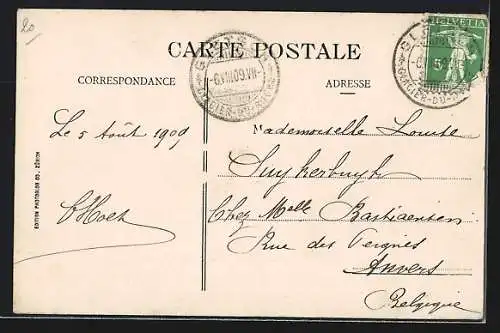 20
CARTE POSTALE
CORRESPONDANCE
ADRESSE
HELVETIA
5
GLETSCH
-6.VIII.09.VII-
GLACIER-DU-RHONE
GLETSCH
GLACIER-DU-RHONE
Le 5 Août 1909
Mademoiselle Louise
Suykerbuyk
Chez Melle Bastiaensens
Rue des Peignes
Anvers
Belgique
EDITION PHOTOGLOB CO., ZÜRICH